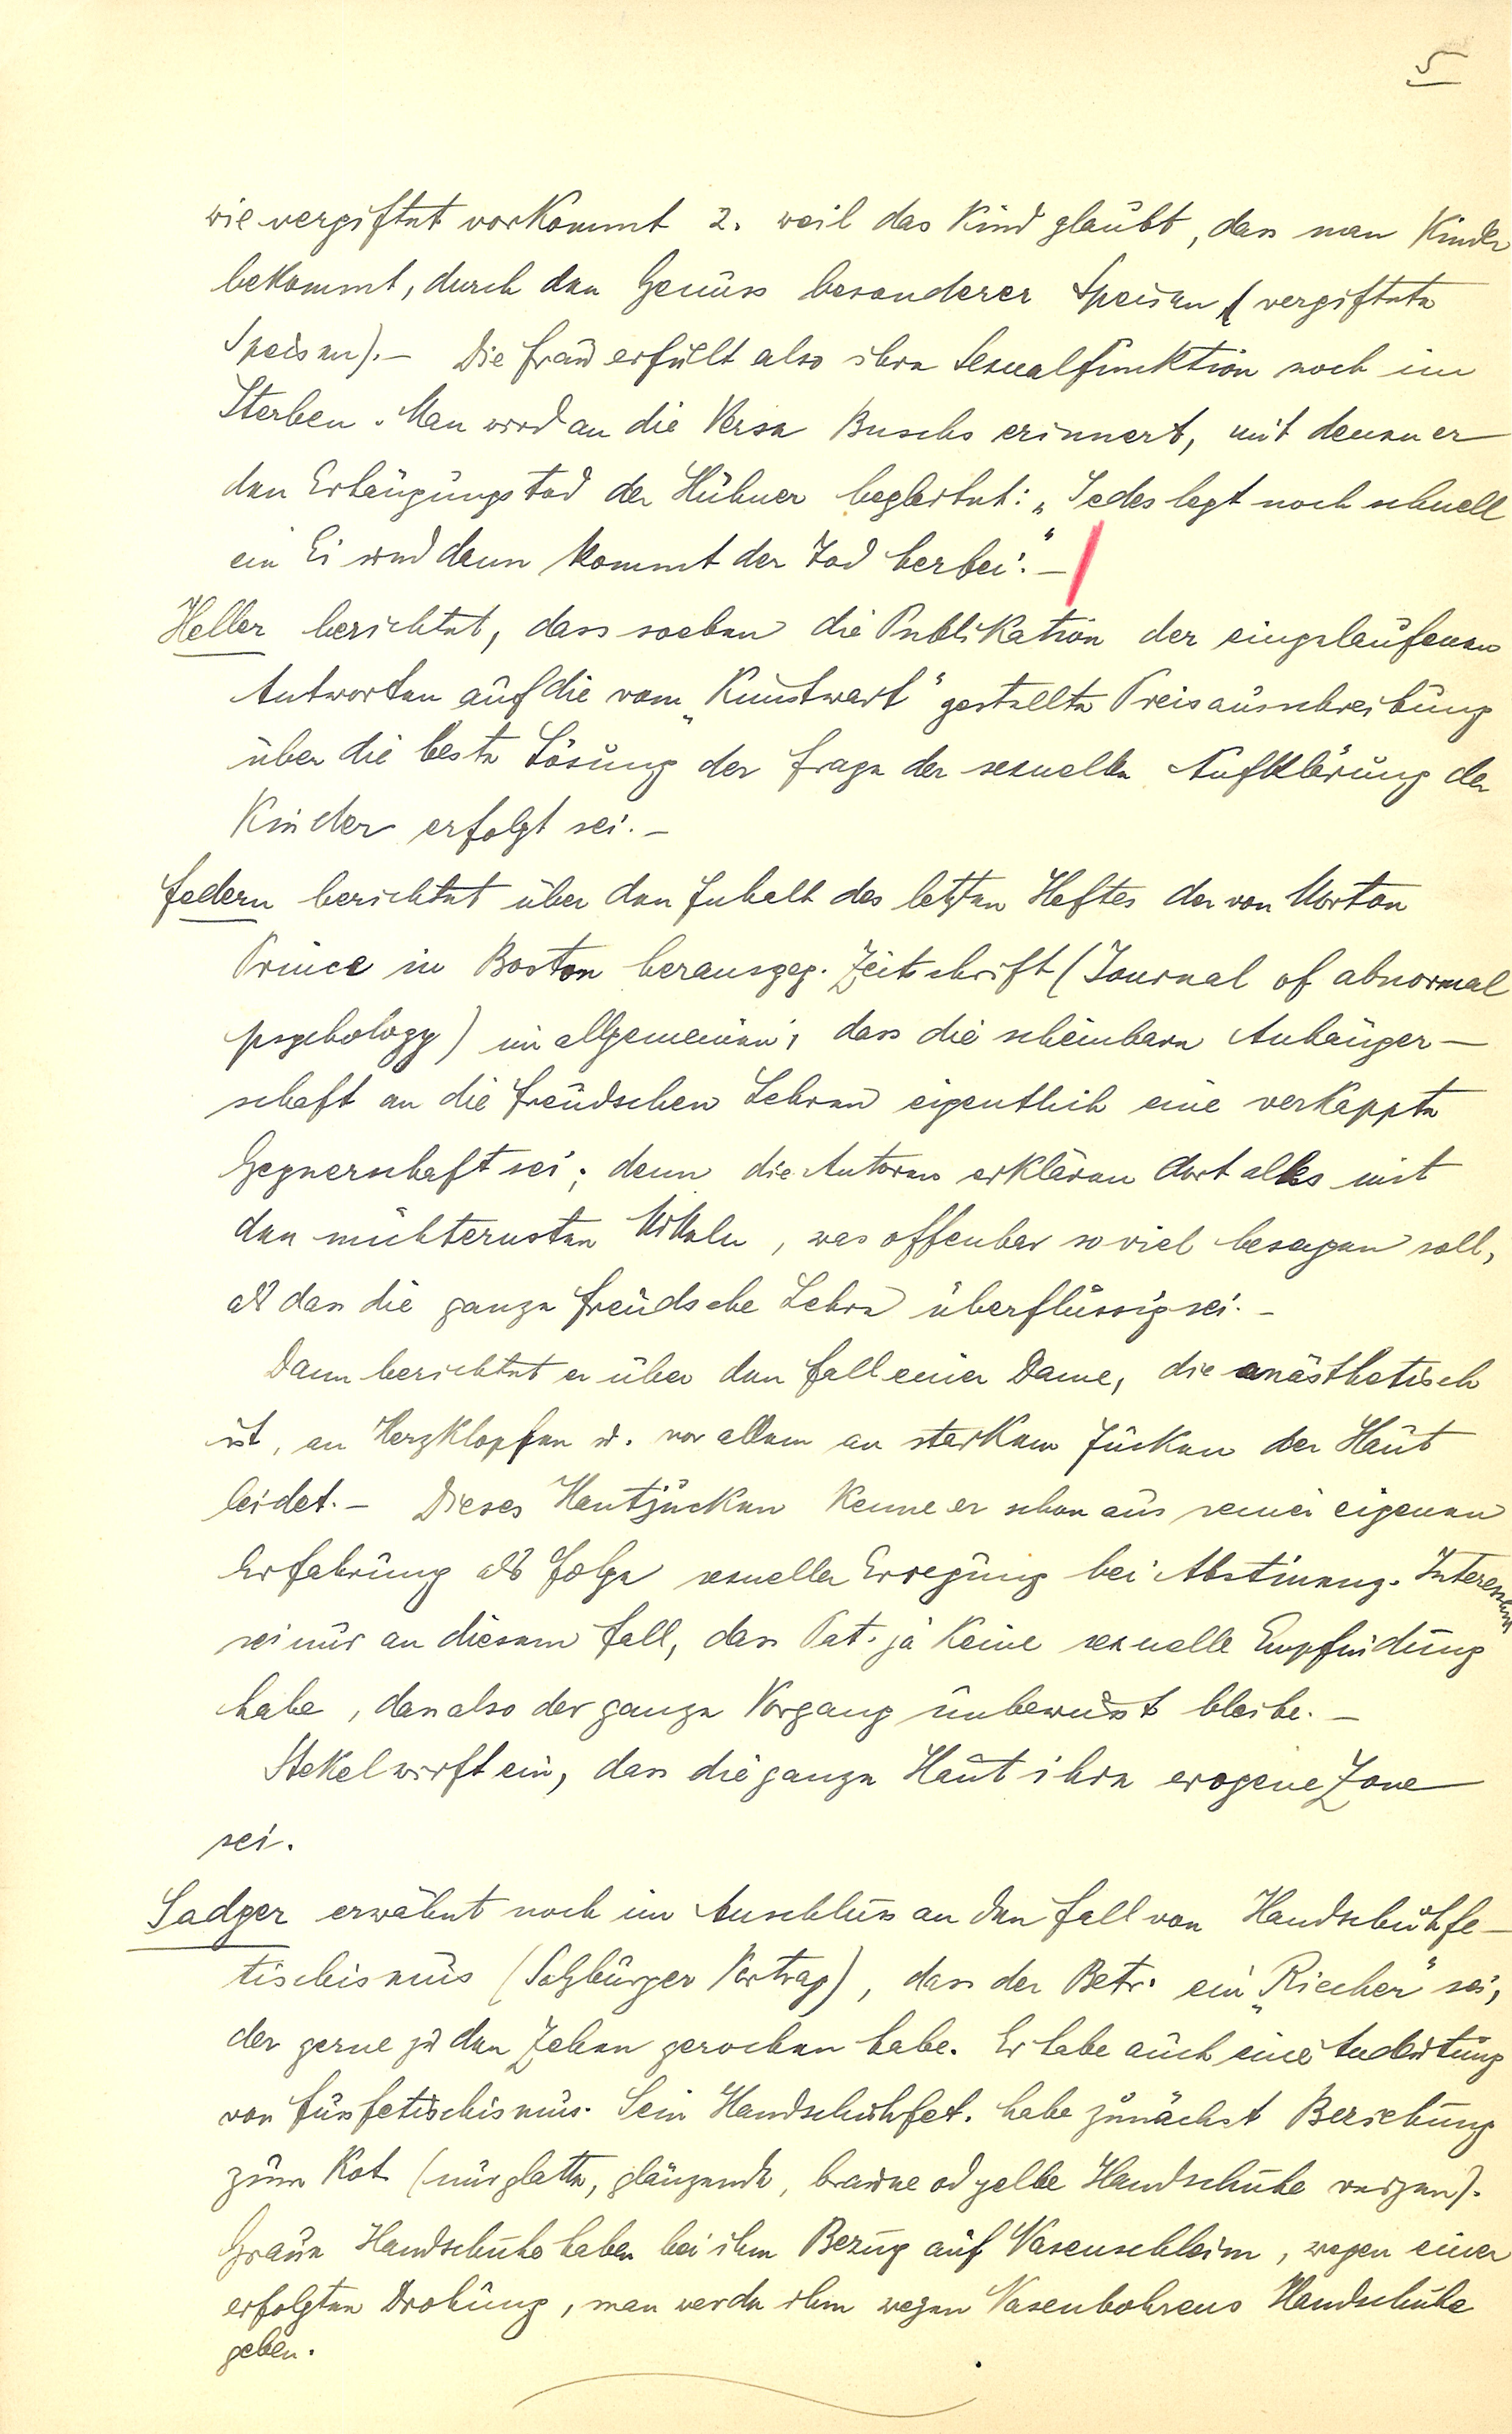 5
wie vergiftet vorkommt 2. weil das Kind glaubt, dass man Kinder
bekommt, durch den Genuss besonderer Speisen (vergiftete
Speisen). – Die Frau erfüllt also ihre Sexualfunktion noch im
Sterben. Man wird an die Verse Buschs erinnert, mit denen er
den Erhängungstod der Hühner begleitet: „Jedes legt noch schnell
ein Ei und dann kommt der Tod herbei." –
Heller berichtet, dass soeben die Publikation der eingelaufenen
Antworten auf die vom „Kunstwart" gestellte Preisausschreibung
über die beste Lösung der Frage der sexuellen Aufklärung der
Kinder erfolgt sei. –
Federn berichtet über den Inhalt des letzten Heftes der von Morton
Prince in Boston herausgeg. Zeitschrift (Journal of abnormal
psychology) im allgemeinen, dass die scheinbare Anhänger–
schaft an die Freudschen Lehren eigentlich eine verkappte
Gegnerschaft sei; denn die Autoren erklären dort alles mit
den nüchternsten Mitteln, was offenbar so viel besagen soll,
als dass die ganze Freudsche Lehre überflüssig sei. –
Dann berichtet er über den Fall einer Dame, die anästhetisch
ist, an Herzklopfen u. vor allem an starkem Jucken der Haut
leidet. – Dieses Hautjucken kenne er schon aus seiner eigenen
Erfahrung als Folge sexueller Erregung bei Abstinenz. Interessant
sei nur an diesem Fall, dass Pat. ja keine sexuelle Empfindung
habe, dass also der ganze Vorgang unbewusst bleibe. –
Stekel wirft ein, dass die ganze Haut ihre erogene Zone
sei.
Sadger erwähnt noch im Anschluss an den Fall von Handschuhfe–
tischismus (Salzburger Vortrag), dass der Betr. ein „Riecher" sei,
der gerne zu den Zehen gerochen habe. Er habe auch eine Andeutung
von Fussfetischismus. Sein Handschuhfet. habe zunächst Beziehung
zum Kot (nur glatte, glänzende, braune od gelbe Handschuhe reizen).
Graue Handschuhe haben bei ihm Bezug auf Nasenschleim, wegen einer
erfolgten Drohung, man werde ihm wegen Nasenbohrens Handschuhe
geben.